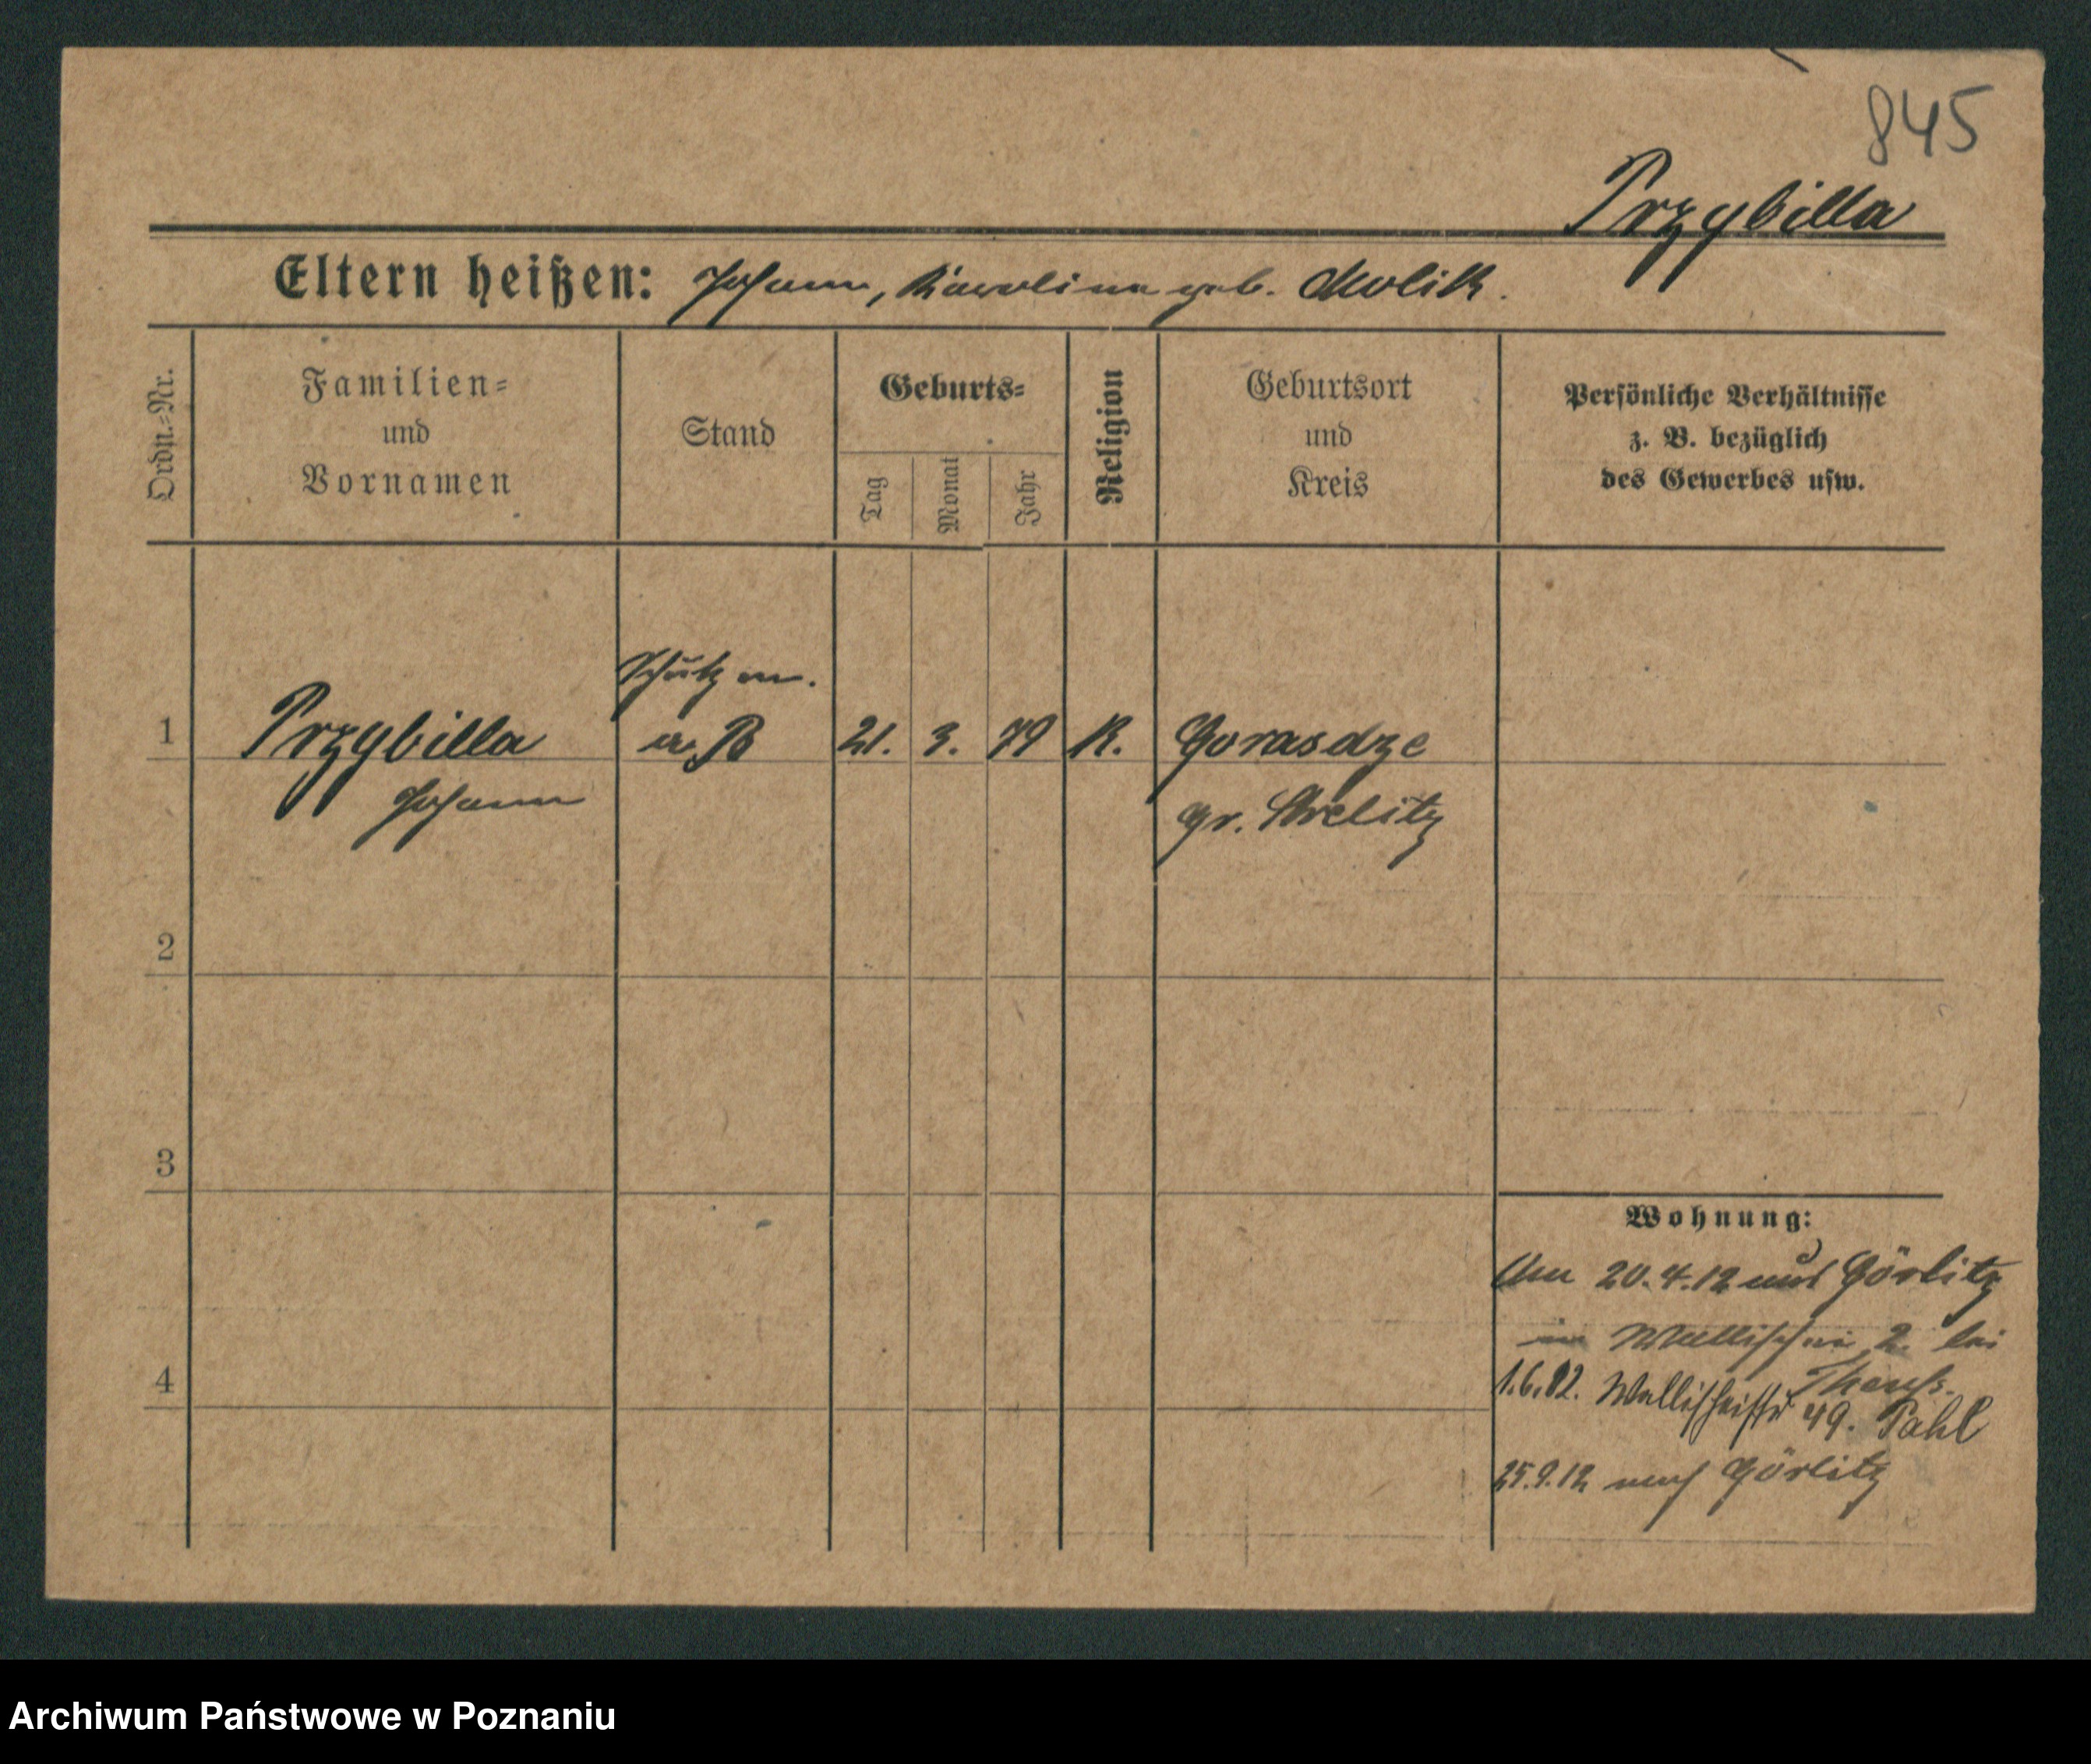 845
Przybilla
Eltern heißen: Johann, Karolina geb. Molik.
Ordn.-Nr.
Familien-
und
Vornamen
Stand
Geburts-
Tag
Monat
Jahr
Religion
Geburtsort
und
Kreis
Persönliche Verhältnisse
z. B. bezüglich
des Gewerbes usw.
Schutzm.
1 Przybilla a. P 21. 3. 79 K. Gorasdze
Johann
Gr. Strelitz
2
3
4
Wohnung:
Am 20.4.12 aus Görlitz
in Wallischei 2. bei
1.6.12. Wallischeistr 49. Pahl
25.9.12 nach Görlitz
Archiwum Państwowe w Poznaniu